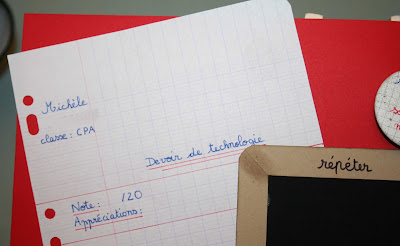 Michèle
classe: CPA
Devoir de technologie
Note: /20
Appréciations:
répéter